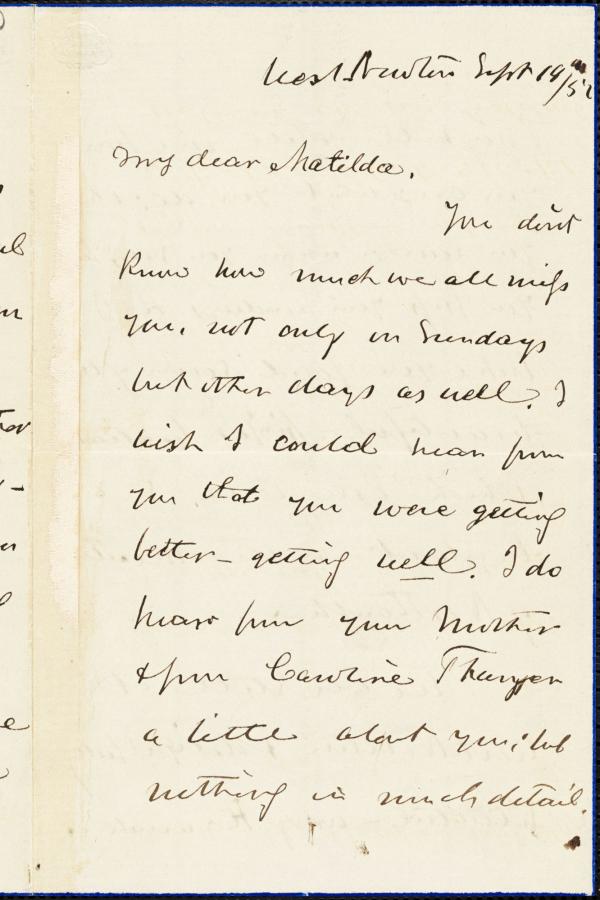 West Newton Sept 19/5
My dear Matilda,
You don't
know how much we all miss
you, not only on Sundays
but other days as well. I
wish I could hear from
you that you were getting
better - getting well. I do
hear from your Mother
& from Caroline Thayer
a little about you; but
nothing in much detail.